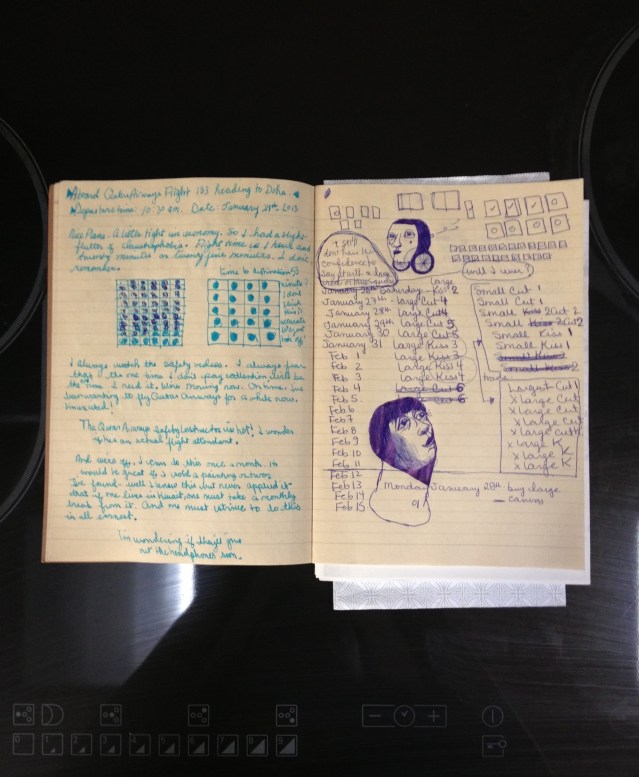 Aboard Qatar Airways Flight 133 heading to Doha.
Departure time: 10:30 am. Date: January 29th 2013
Nice Plane. A little tight in economy. So I had a slight
flutter of claustrophobia. Flight time is 1 hour and
twenty minutes or twenty five minutes. I don't
remember.
time to
minute
I don't
think
this is
accurate
We just
took off
I always watch the safety videos. I always fear
that the one time I don't pay attention will be
the time I need it. We're moving now. On time. I've
been wanting to fly Qatar Airways for a while now.
The Qatar Airways Safety instructor is hot! I wonder
if he's an actual flight attendant.
And we're off. I can do this once a month. It
would be great if I sold a painting or two.
I've found - well I knew this but never applied it -
that if one lives in one must take a monthly
break from it. And one must continue to do this
in all earnest.
I'm wondering if they'll give
out the headphones soon.
I still
don't have the
confidence to
say it'll a day
until I use?
Large
January 26th Saturday - Kiss 2
January 27th - Large Cut 4
January 28th Large Cut 4
January 29th Large Cut 5
January 30 Large Cut 5
January 31 Large Kiss 3
Feb 1 Large Kiss 3
Feb 2 Large Kiss 4
Feb 3 Large Kiss 4
Feb 4 Large Cut 6
Feb 5
Feb 6
Feb 7
Feb 8
Feb 9
Feb 10
Feb 11
Feb 12
Feb 13
Feb 14
Feb 15
Small Cut 1
Small Cut 1
Small Kiss 2 Cut 2
Small Kiss 2 Cut 2
Small Kiss 1
Small Kiss 1
Small Kiss 2
Largest Cut 1
X large Cut
X large Cut
X large Cut
X large Cut
X large K
X large K
X large K
Monday January 28th buy large
canvas